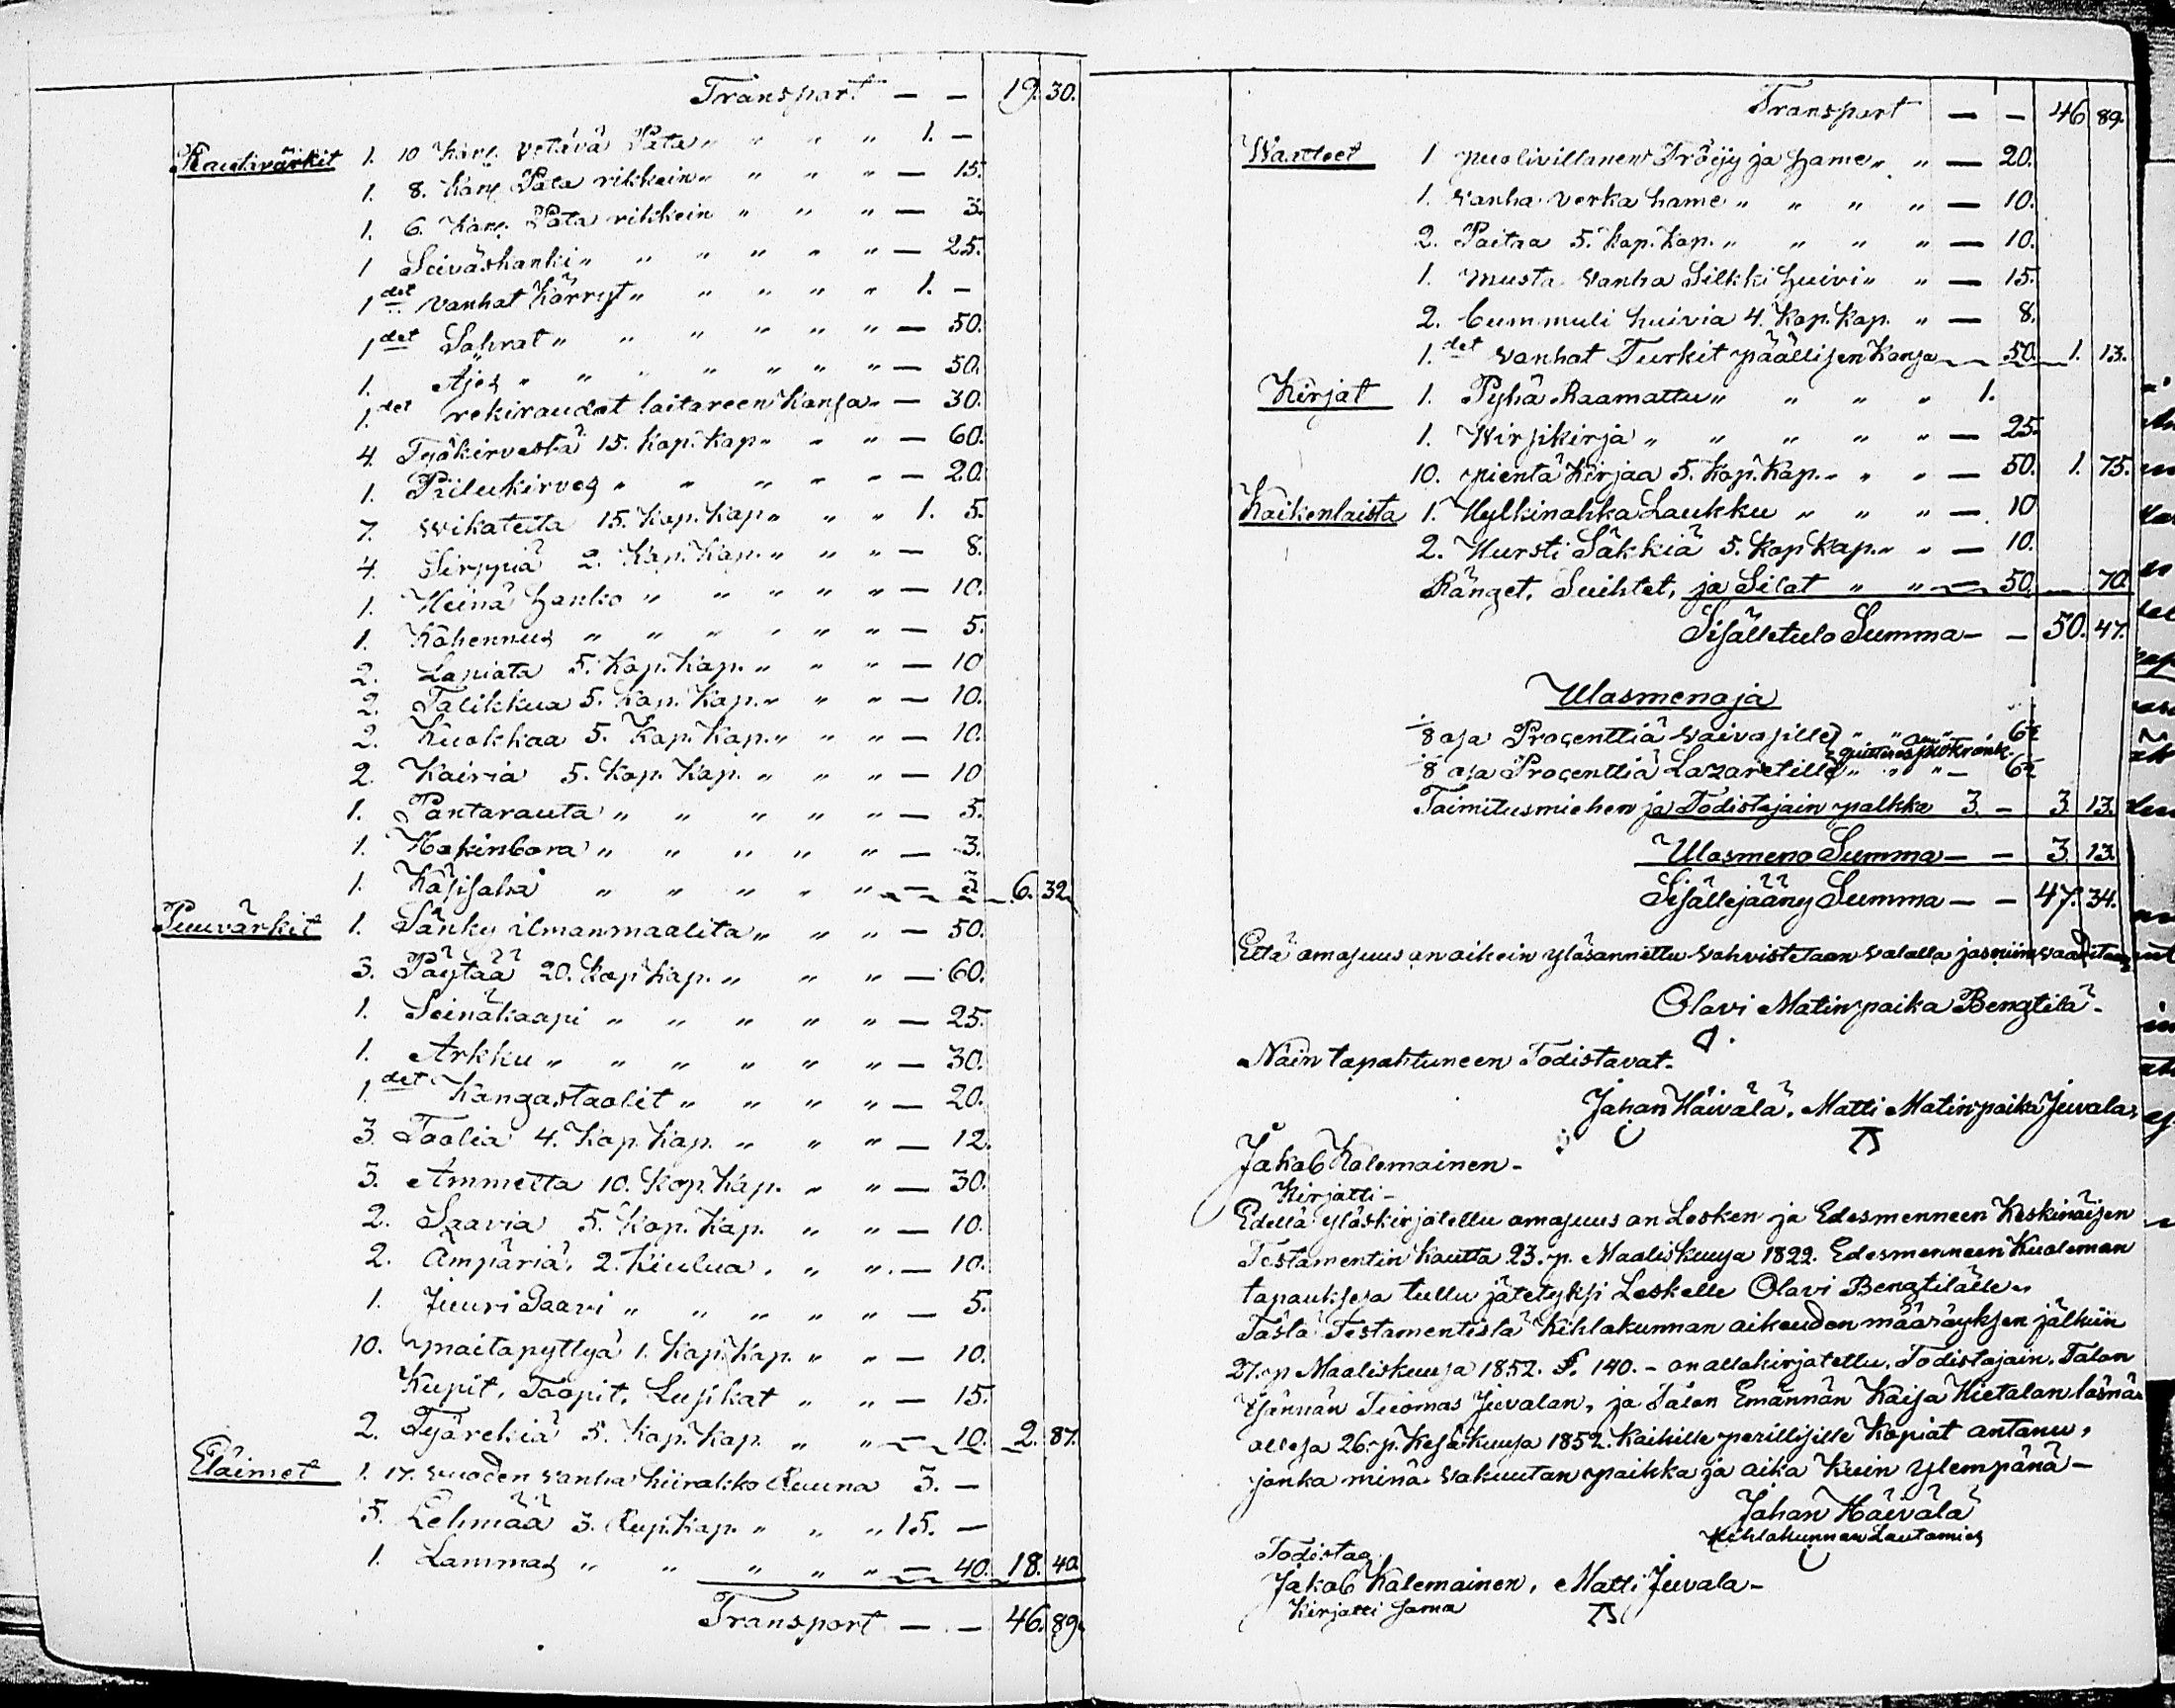 Transport — — 19. 30.
Rautivärkit 1. 10 Kan: vetävä Pata " " " " 1. —
1. 8. Kan: Pata rikkein " " " " — 15.
1. 6. Kan: Pata rikkein " " " — 3.
1 Seiväskanki " " " " " " — 25.
1 det vanhat Kärryt " " " " " 1. —
1 det Sahrat " " " " " " — 50.
1. Ajes " " " " " " " — 50.
1. det rekiraudat laitareen Kansa " — 30.
4. Työkirvestä 15. Kop. Kap " " " — 60.
1. Piilukirves " " " " " — 20.
7. Wikateita 15. Kop. Kap " " " 1. 5.
4. Sirppiä 2. Kap. Kap. " " " — 8.
1. Heinä hanko " " " " " — 10.
1. Kohennus " " " " " " — 5.
2. Lapiata 5. Kop. Kap. " " " — 10
2. Talikkua 5. Kap. Kap. " " " — 10.
2. Kuokkaa 5. Kop. Kap. " " " — 10.
2. Kairia 5. Kop. Kap. " " " — 10
1. Pantarauta " " " " " — 5.
1. Hakinbora " " " " " — 3.
1. Käsisaha " " " " " — 3 6. 32.
Puuvärkit 1. Sänky ilman maalita " " " — 50.
3. Päytää 20. Kop Kap. " " " — 60.
1. Seinäkaapi " " " " " — 25.
1. Arkku " " " " " " — 30.
1. det Kangastaolit " " " " — 20.
3. Taolia 4. Kop. Kap. " " " — 12.
3. Ammetta 10. Kop. Kap. " " — 30.
2. Saavia 5. Kop. Kap. " " — 10.
2. Ämpäriä, 2. Kiulua, " " — 10.
1. Juuri Paari " " " " " — 5.
10. maitapyttyä 1. Kap. Kap. " " — 10.
Kupit, Taapit, Lusikat " " — 15.
2. Työrekiä 5. Kap. Kap. " " — 10. 2. 87.
Eläimet 1. 17. vuoden vanha hiirakko Ruuna 3. —
5. Lehmää 3. Rup. Kap. " " " 15. —
1. Lammas " " " " " — 40. 18. 40.
Transport — — 46. 89.
Transport — — 46 89.
Waatteet 1 puolivillanen Tröijy ja hame " " — 20.
1. vanha verka hame " " " " — 10.
2. Paitaa 5. Kap. Kap. " " " " — 10.
1. musta vanha Silkki huivi " " — 15.
2. Cummuli huivia 4. Kap. Kap. " — 8.
1. det vanhat Turkit päällisen Kansa — 50. 1. 13.
Kirjat 1. Pyhä Raamattu " " " " 1.
1. Wirsikirja " " " " " — 25.
10. pientä Kirjaa 5. Kop. Kap. " " " — 50. 1. 75.
Kaikenlaista 1. Hylkinahka Laukku " " " — 10
2. Hursti Säkkiä 5. Kop Kap. " " — 10.
Ränget, Suihtet, ja Silat " " — 50. — 70.
Sisälletulo Summa — — 50. 47.
Ulasmenoja
1/8 asa Procenttiä vaivasille " " " 6½
1/8 asa Procenttiä Lazaretille " " " — 6½
Taimitusmiehen ja Todistajain palkka 3. — 3. 13.
Ulasmeno Summa — — 3. 13.
Sisällejääny Summa — — 47. 34.
Että amasuus an aikein yläsannettu vahvistetaan valalla jas niin vaaditaan
Olavi Matinpaika Bengtilä -
Näin tapahtuneen Todistavat.
Johan Häivälä, Matti Matinpaika Juvala,
Jakob Kalemainen -
Kirjatti -
Edellä yläskirjatettu amasuus an Lesken ja Edesmenneen Keskinäisen
Testamentin kautta 23. p. Maaliskuusa 1822. Edesmenneen Kuoleman
tapauksesa tullu jätetyksi Leskelle Olavi Bengtilälle.
Tästä Testamentistä Kihlakunnan aikeuden määräyksen jälkiin
27. p Maaliskuusa 1852. §. 140. - an allakirjatettu, Todistajain, Talon
Isännän Tuomas Juvalan, ja Talon Emännän Kaisa Hietalan läsnä-
allesa 26. p. Kesäkuusa 1852. Kaikille perillisille Kopiat antanu,
jonka minä vakuutan paikka ja aika Kuin ylempänä —
Johan Häivälä
Kihlakunnan Lautamies
Todistaa
Jakob Kalemainen, Matti Juvala -
Kirjatti sama